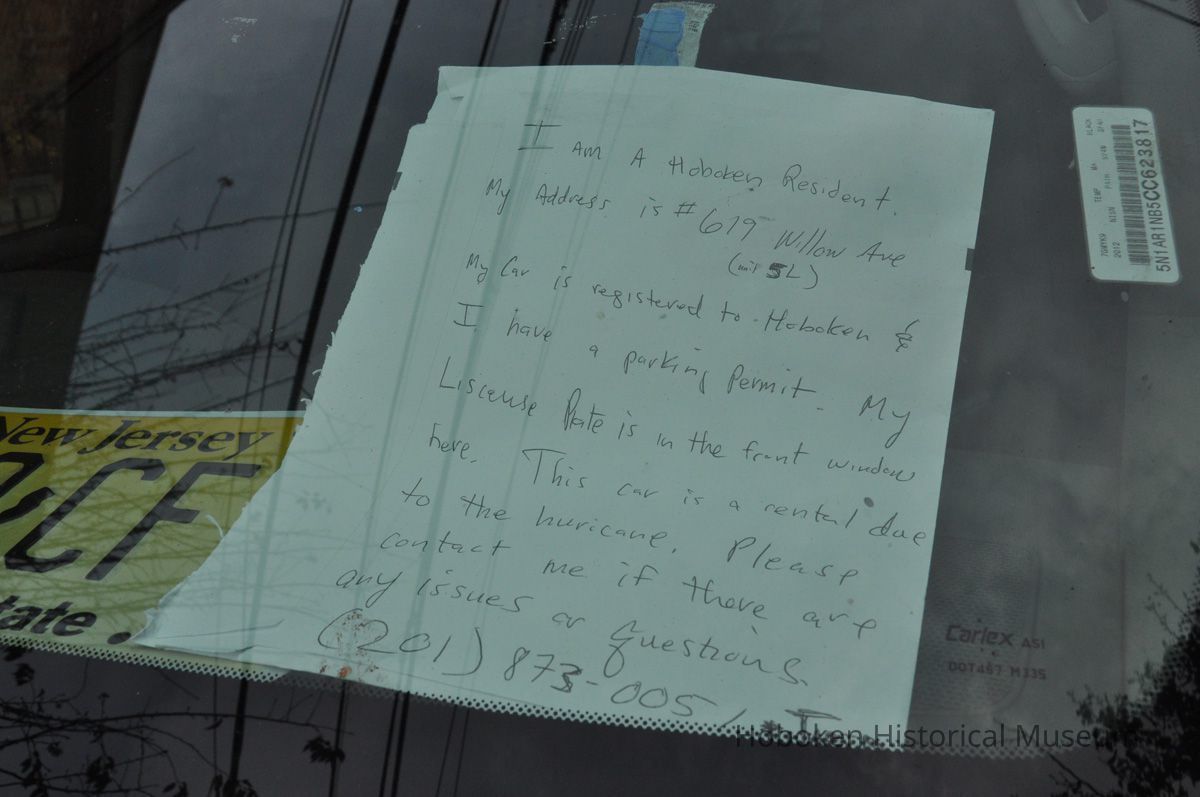 I Am A Hoboken Resident.
My Address is # 619 Willow Ave
(unit 5L)
My Car is registered to Hoboken &
I have a parking Permit. My
Liscense Plate is in the front window
here. This car is a rental due
to the huricane. Please
contact me if there are
any issues or questions.
(201) 873-005
New Jersey
CF
tate
5N1AR1NB5CC623817
2012 NISN PATH
TEMP
BLACK
Carlex AS1
DOT467 M335
Hoboken Historical Museum